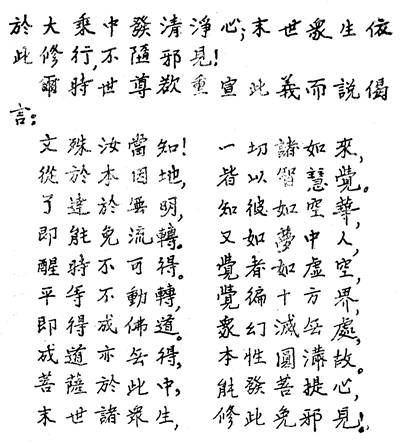 於大乘中發清淨心;末世衆生依
此修行,不隨邪見!
爾時世尊欲重宣此義而說偈
言:
文殊汝當知! 一切諸如來,
從於本因地, 皆以智慧覺。
了達於無明, 知彼如空華,
即能免流轉。 又如夢中人,
醒時不可得。 覺者如虛空,
平等不動轉, 覺徧十方界,
即得成佛道。 衆幻滅无處,
成道亦无得, 本性圓滿故。
菩薩於此中, 能發菩提心,
末世諸衆生, 修此免邪見!